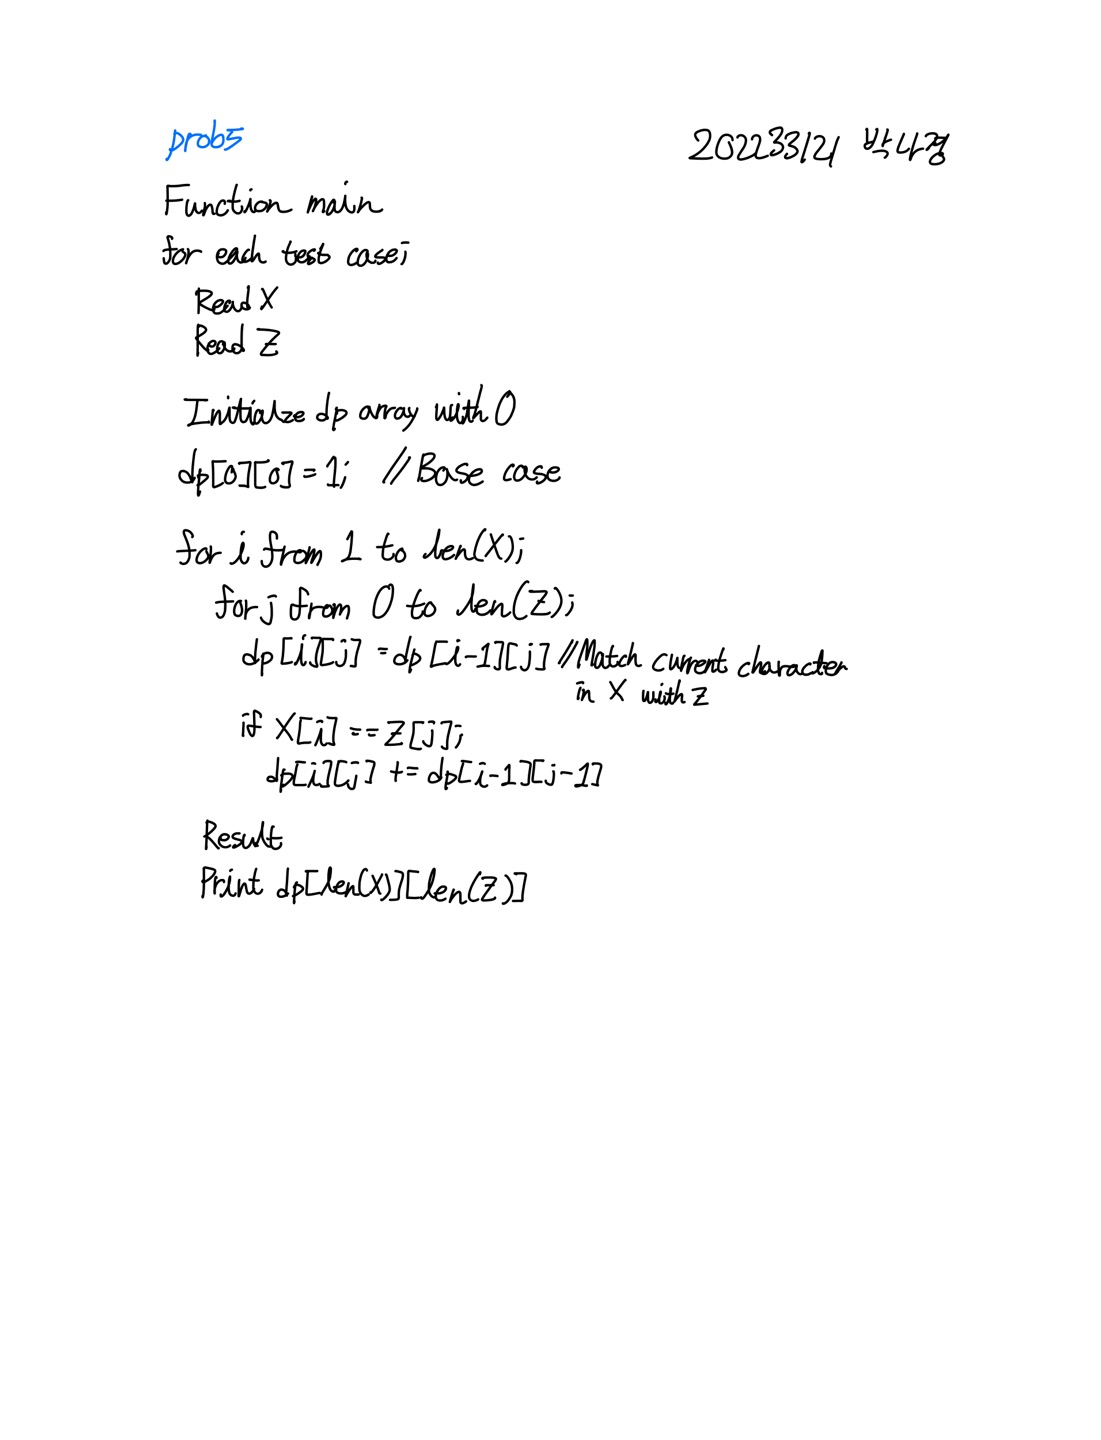 prob5
202233121 박나경
Function main
for each test case;
Read X
Read Z
Initialze dp array with 0
dp[0][0] = 1; // Base case
for i from 1 to len(X);
for j from 0 to len(Z);
dp[i][j] = dp[i-1][j] //Match current character
in X with Z
if X[i] == Z[j];
dp[i][j] += dp[i-1][j-1]
Result
Print dp[len(X)][len(Z)]